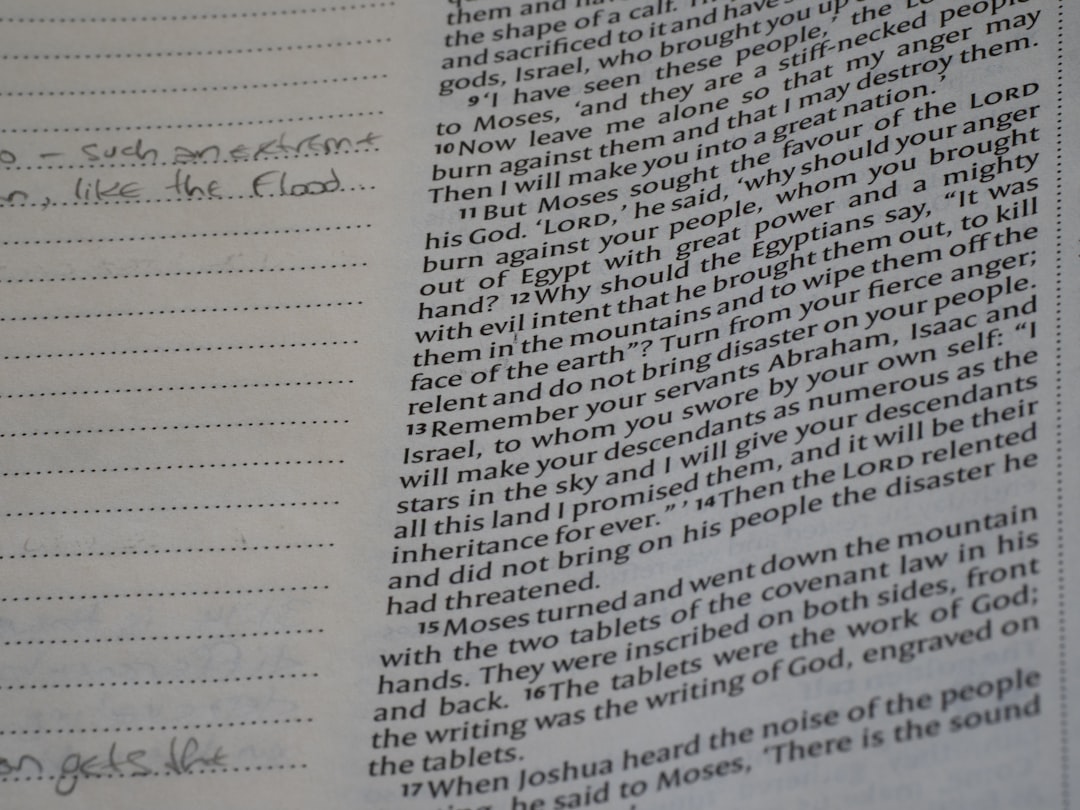 - such an extreme
like the Flood
gets the
them and
the shape of a calf.
and sacrificed to it and have
gods, Israel, who brought you up
9 ‘I have seen these people,’ the
to Moses, ‘and they are a stiff-necked people
10 Now leave me alone so that my anger may
burn against them and that I may destroy them.
Then I will make you into a great nation.’
11 But Moses sought the favour of the LORD
his God. ‘LORD,’ he said, ‘why should your anger
burn against your people, whom you brought
out of Egypt with great power and a mighty
hand? 12 Why should the Egyptians say, “It was
with evil intent that he brought them out, to kill
them in the mountains and to wipe them off the
face of the earth”? Turn from your fierce anger;
relent and do not bring disaster on your people.
13 Remember your servants Abraham, Isaac and
Israel, to whom you swore by your own self: “I
will make your descendants as numerous as the
stars in the sky and I will give your descendants
all this land I promised them, and it will be their
inheritance for ever.” ’ 14 Then the LORD relented
and did not bring on his people the disaster he
had threatened.
15 Moses turned and went down the mountain
with the two tablets of the covenant law in his
hands. They were inscribed on both sides, front
and back. 16 The tablets were the work of God;
the writing was the writing of God, engraved on
the tablets.
17 When Joshua heard the noise of the people
he said to Moses, ‘There is the sound